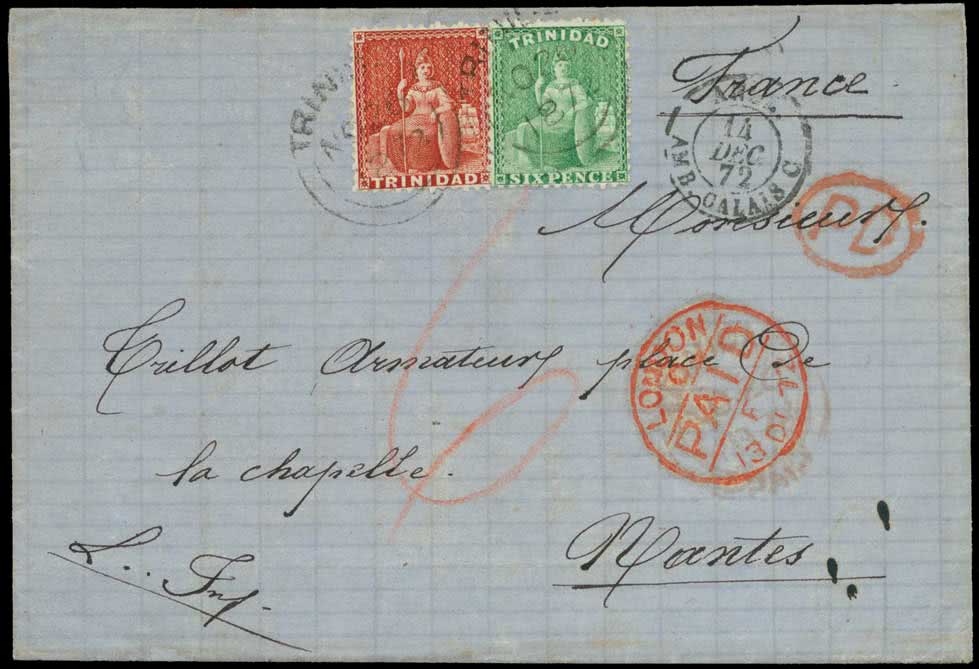 TRINIDAD
TRINIDAD
SIX PENCE
TRINIDAD
France
14
DEC.
72
AMB. CALAIS C
PD
Monsieur
Trillot Armateur place De
la chapelle.
LONDON
PAID
13 DE 72
Nantes